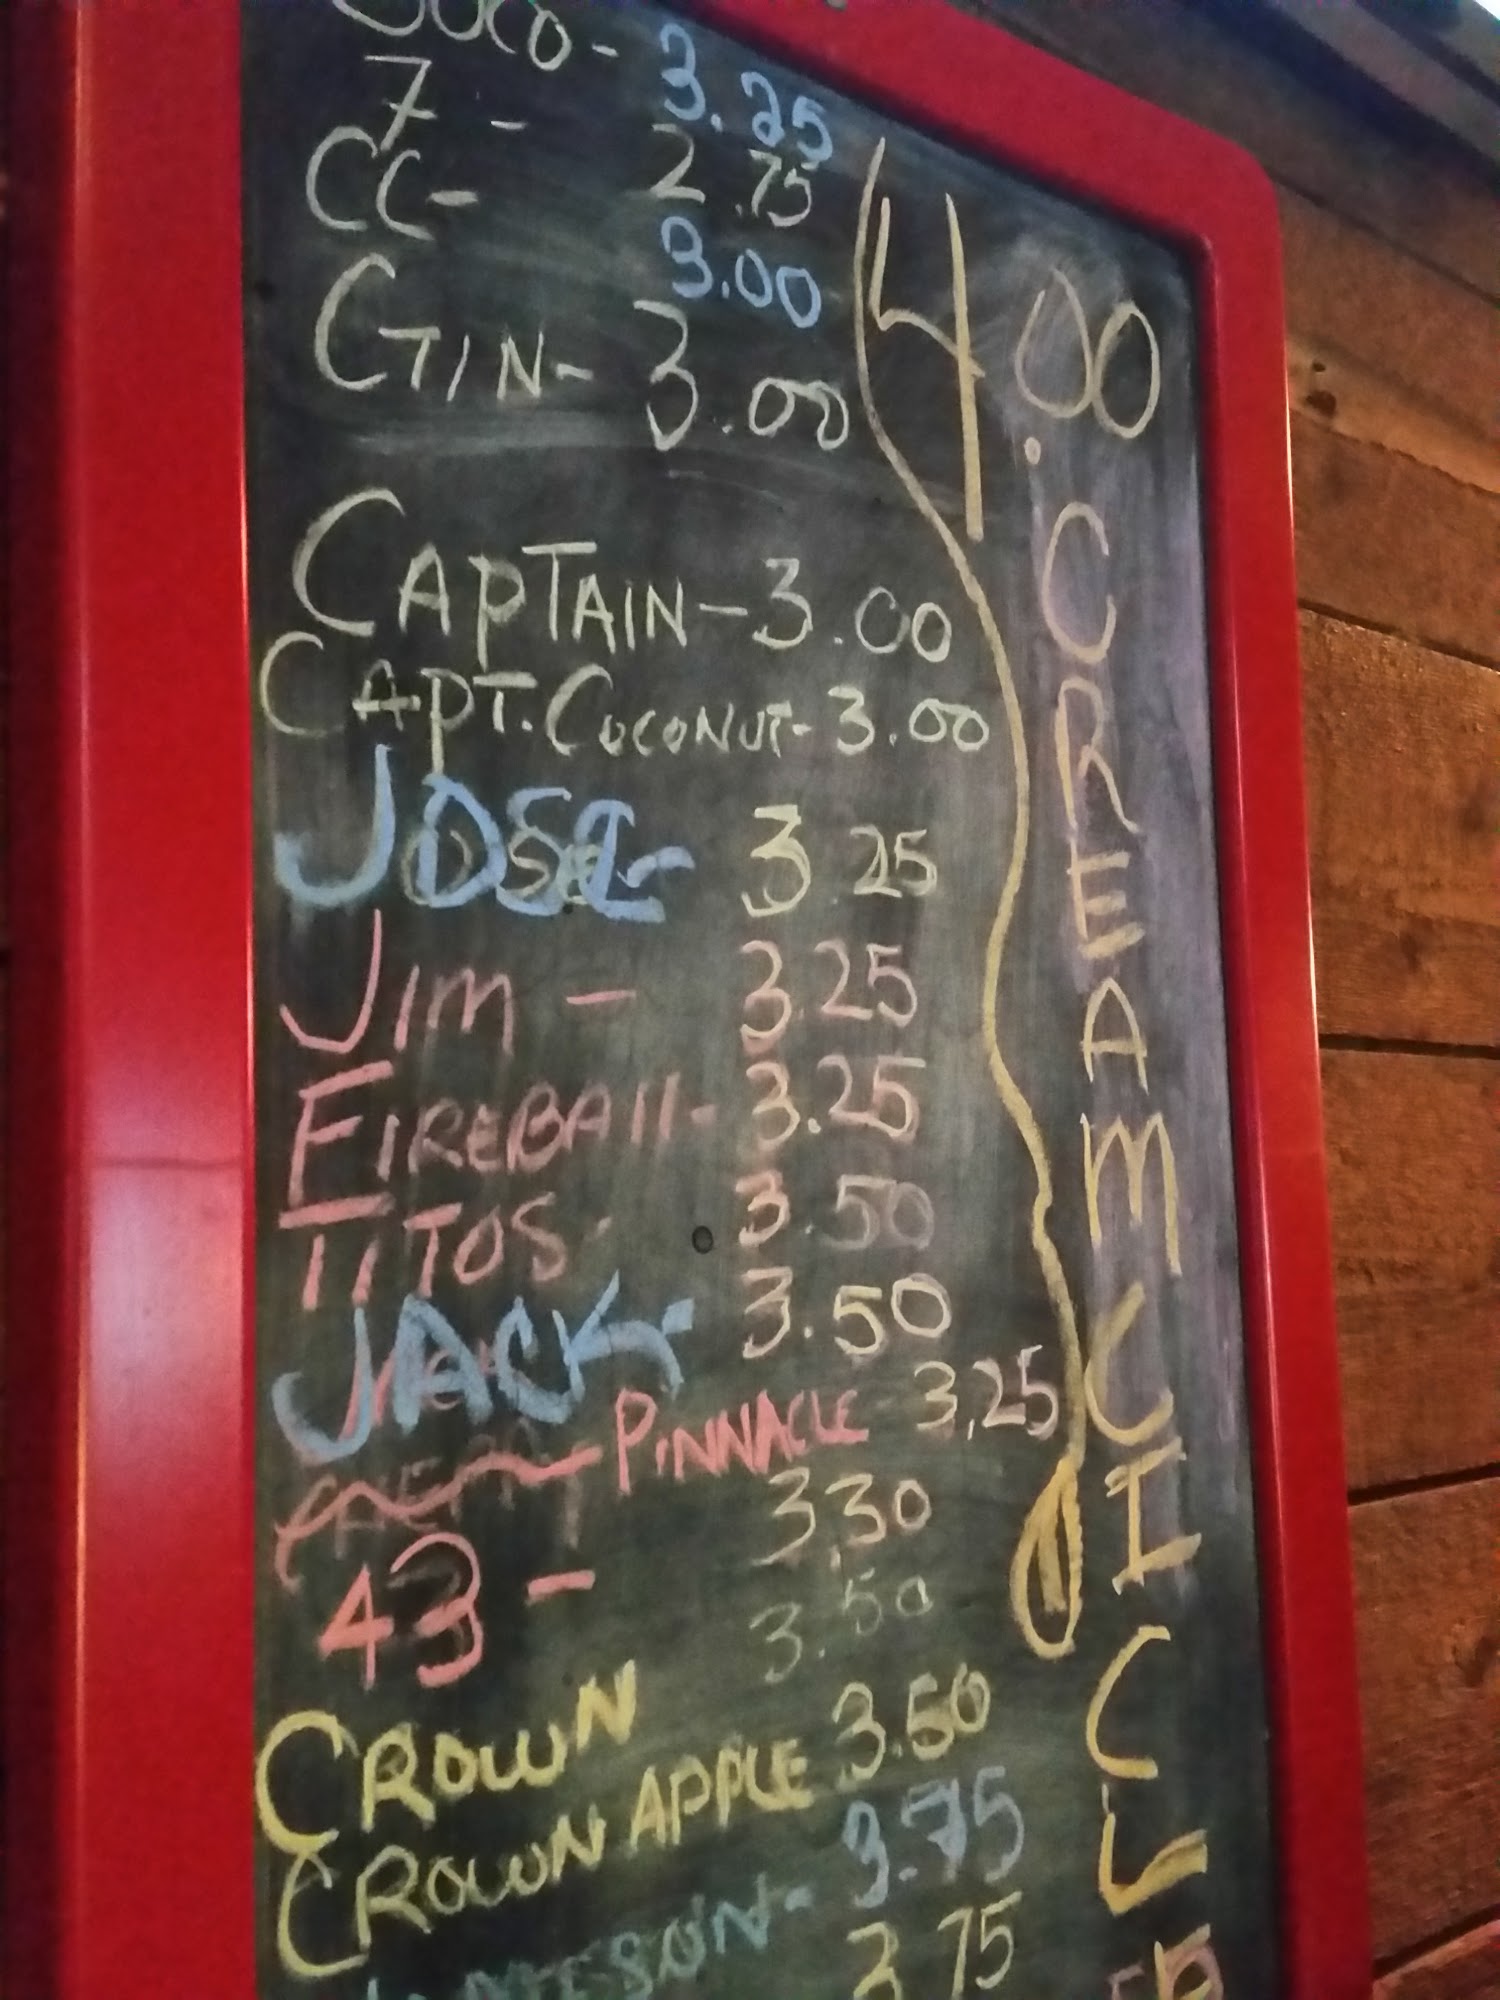 SOCO - 3.25
7 - 2.75
CC - 3.00
GIN - 3.00
CAPTAIN - 3.00
CAPT. COCONUT - 3.00
JOSE - 3.25
JIM - 3.25
FIREBALL - 3.25
TITOS - 3.50
JACK - 3.50
PINNACLE 3,25
43 - 3.30
3.50
CROWN 3.50
CROWN APPLE 3.75
3.75
4.00
CREAMCICL